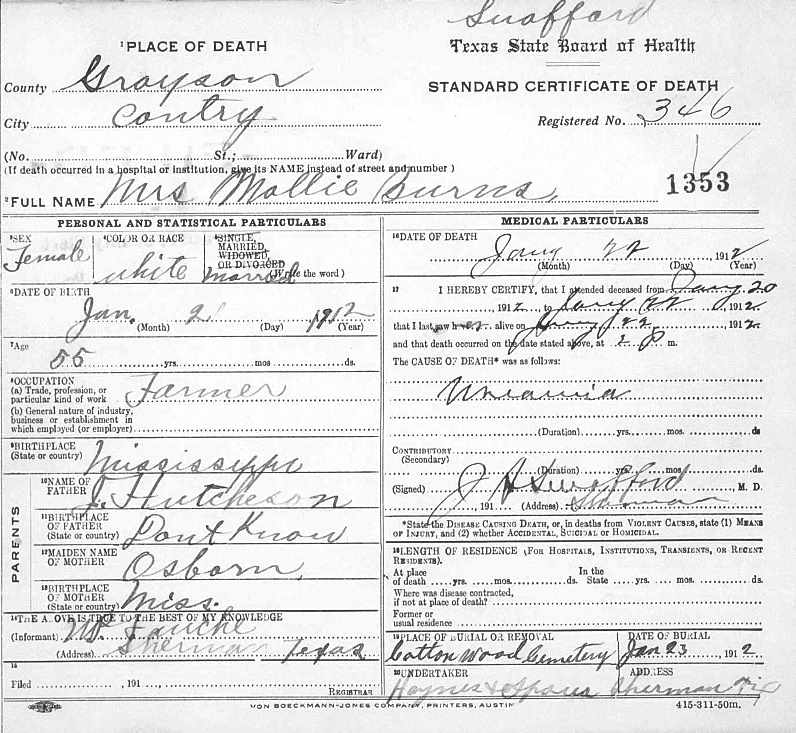 Swafford
Texas State Board of Health
STANDARD CERTIFICATE OF DEATH
Registered No. 346
1353
1 PLACE OF DEATH
County Grayson
City Contry
(No. St.; Ward)
(If death occurred in a hospital or institution, give its NAME instead of street and number)
2 FULL NAME Mrs Mollie Burns
PERSONAL AND STATISTICAL PARTICULARS
3 SEX Female
4 COLOR OR RACE white
5 SINGLE, MARRIED, WIDOWED, OR DIVORCED (Write the word) Married
6 DATE OF BIRTH
Jan. 2 1912
(Month) (Day) (Year)
7 Age
55 yrs. mos. ds.
8 OCCUPATION
(a) Trade, profession, or particular kind of work Farmer
(b) General nature of industry, business or establishment in which employed (or employer)
9 BIRTHPLACE
(State or country) Mississippi
PARENTS
10 NAME OF FATHER J. Hutcheson
11 BIRTHPLACE OF FATHER (State or country) Dont Know
12 MAIDEN NAME OF MOTHER Osborn
13 BIRTHPLACE OF MOTHER (State or country) Miss.
14 THE ABOVE IS TRUE TO THE BEST OF MY KNOWLEDGE
(Informant)
(Address) Sherman Texas
15
Filed , 191
REGISTRAR
MEDICAL PARTICULARS
16 DATE OF DEATH
Jany 22 1912
(Month) (Day) (Year)
17 I HEREBY CERTIFY, that I attended deceased from Jany 20
1912 to Jany 22 1912
that I last saw her alive on Jany 22 1912
and that death occurred on the date stated above, at 2 P m.
The CAUSE OF DEATH* was as follows:
Uraemia
(Duration) yrs. mos. ds
CONTRIBUTORY
(Secondary)
(Duration) yrs. mos. ds.
(Signed) J A Swafford M. D.
, 191 (Address) Sherman
*State the DISEASE CAUSING DEATH, or, in deaths from VIOLENT CAUSES, state (1) MEANS OF INJURY, and (2) whether ACCIDENTAL, SUICIDAL or HOMICIDAL.
18 LENGTH OF RESIDENCE (FOR HOSPITALS, INSTITUTIONS, TRANSIENTS, OR RECENT RESIDENTS).
At place of death yrs. mos. ds. In the State yrs. mos. ds.
Where was disease contracted, if not at place of death?
Former or usual residence
19 PLACE OF BURIAL OR REMOVAL
Cotton Wood Cemetery
DATE OF BURIAL
Jan 23 1912
20 UNDERTAKER
Haynes &
ADDRESS
Sherman Tex
VON BOECKMANN-JONES COMPANY, PRINTERS, AUSTIN
415-311-50m.